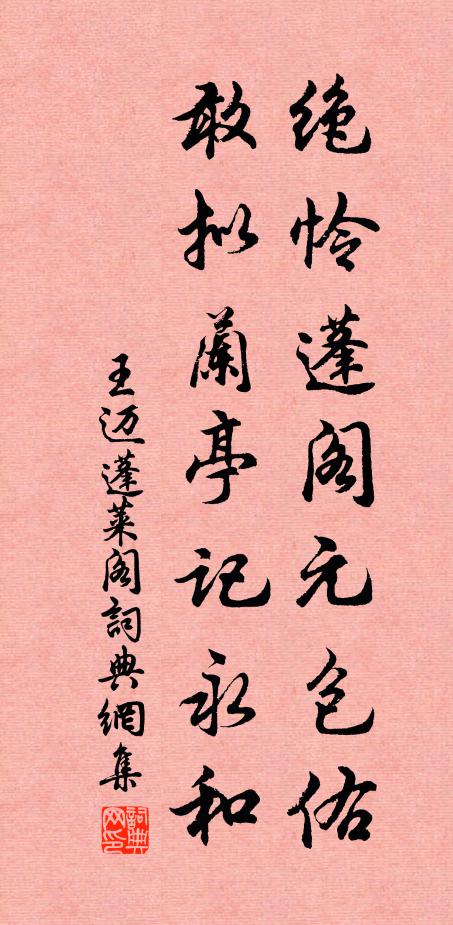 绝怜蓬阁元包佑
敢拟蘭亭记永和
王迈蓬莱阁詞典網集
詞典网印